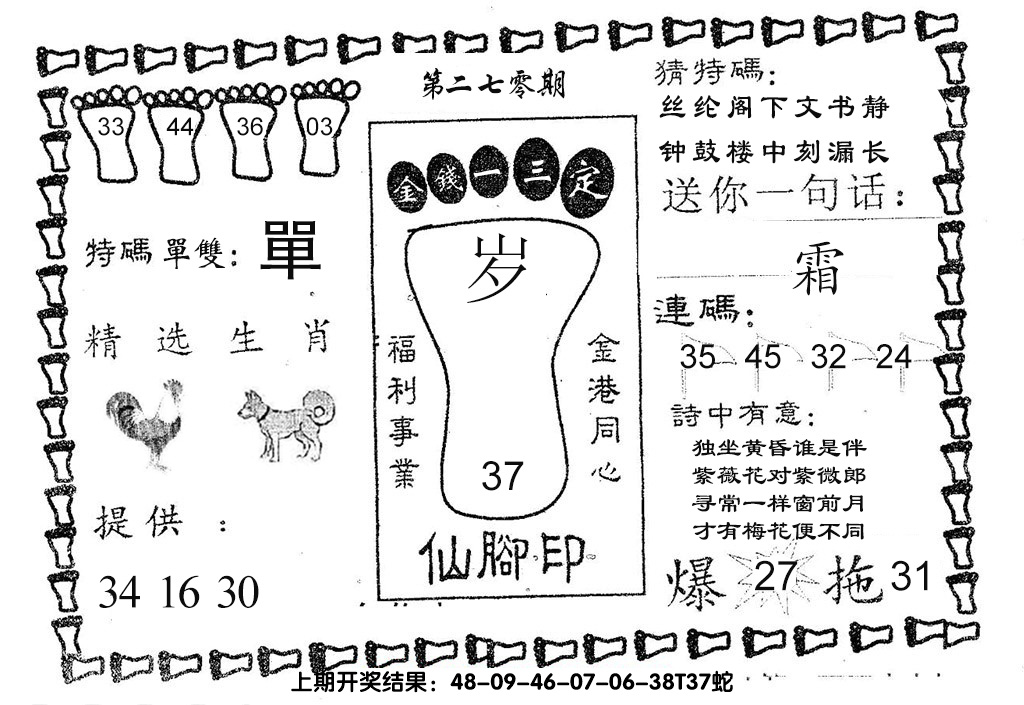 第二七零期
33 44 36 03
特碼單雙：單
精选生肖
提供：
34 16 30
金錢一三定
岁
福利事業
金港同心
37
仙腳印
猜特碼：
丝纶阁下文书静
钟鼓楼中刻漏长
送你一句话：
霜
連碼：
35 45 32 24
詩中有意：
独坐黄昏谁是伴
紫薇花对紫微郎
寻常一样窗前月
才有梅花便不同
爆 27 拖 31
上期开奖结果：48-09-46-07-06-38T37蛇